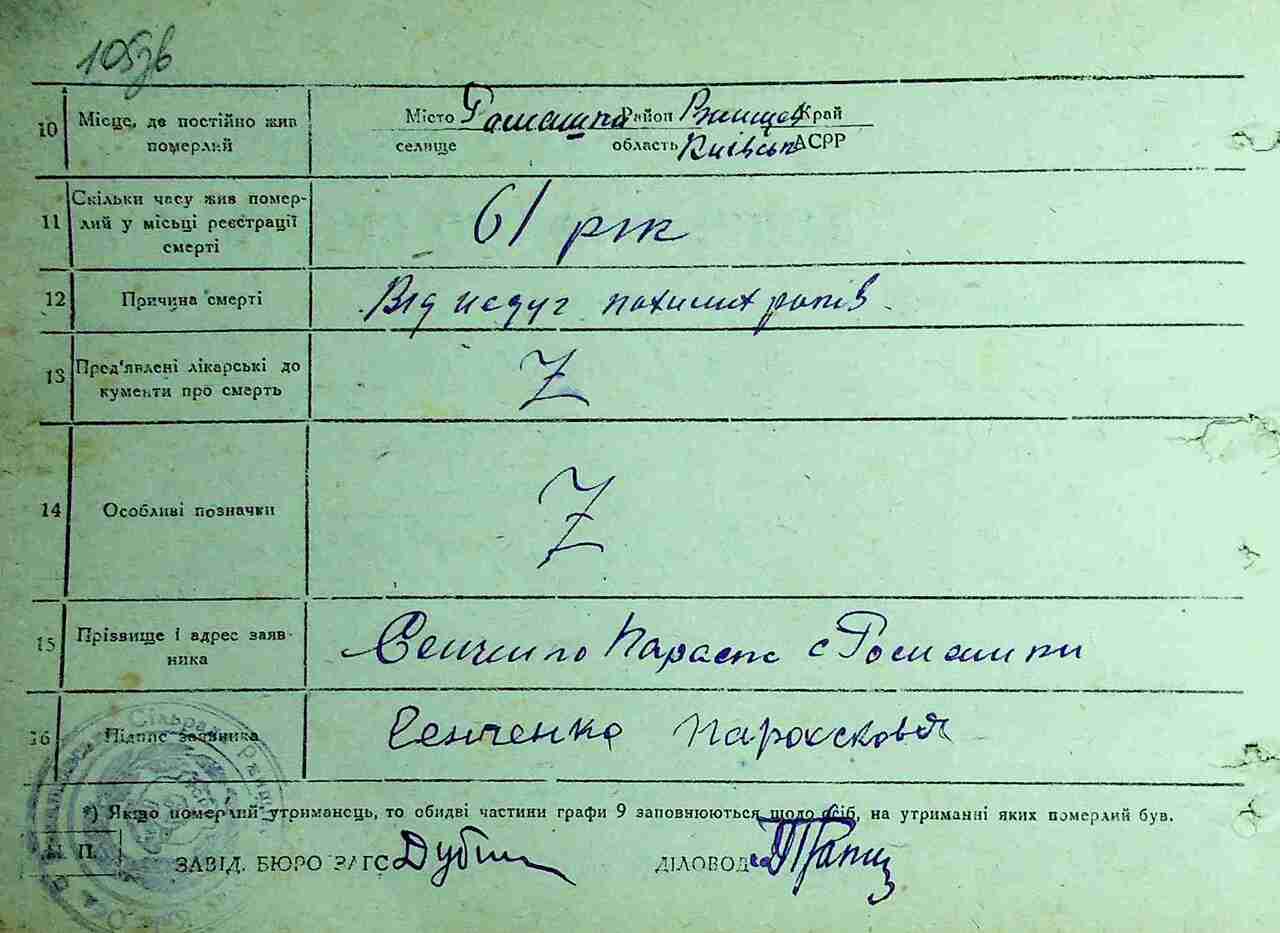 105зв
10 Місце, де постійно жив померлий
Місто Ромашка Район Ржищев Край
селище область Київськ АСРР
11 Скільки часу жив помер-
лий у місьці реєстрації
смерті
61 рік
12 Причина смерті
Від недуг похилих років
13 Пред'явлені лікарські до
кументи про смерть
Z
14 Особливі позначки
Z
15 Прізвище і адрес заяв-
ника
Сенченко Параска с Ромашки
16 Підпис заявника
Сенченко Парасковія
*) Якщо померлий утриманець, то обидві частини графи 9 заповнюються щодо осіб, на утриманні яких померлий був.
М. П.
ЗАВІД. БЮРО ЗАГС ДІЛОВОД
Сільрада